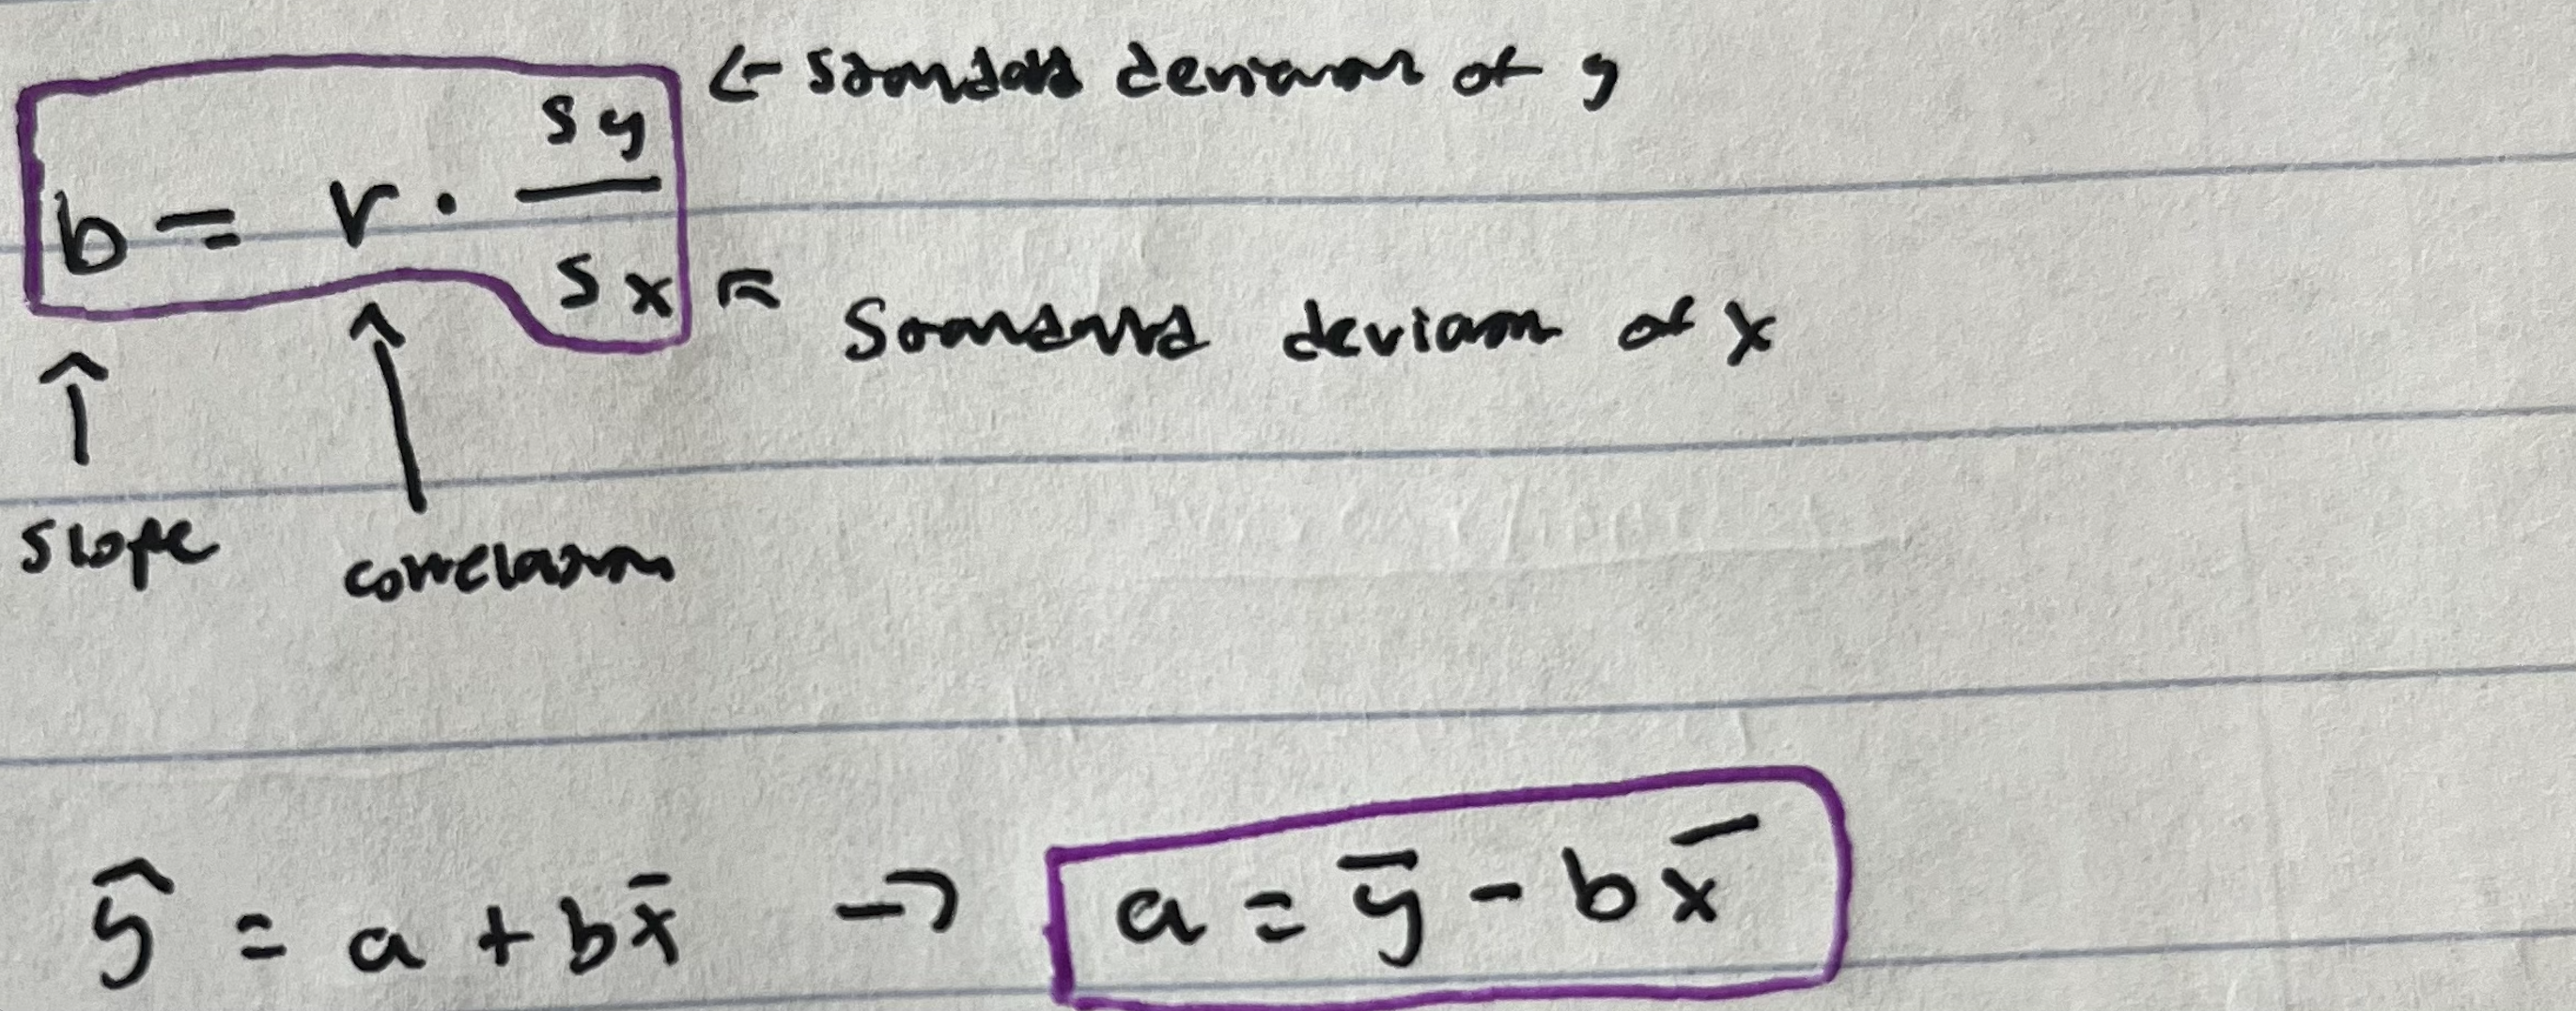 b = r · sy / sx
← standard deviation of y
← standard deviation of x
↑ ↑
slope correlation
ŷ = a + bx̄ → a = ȳ - bx̄